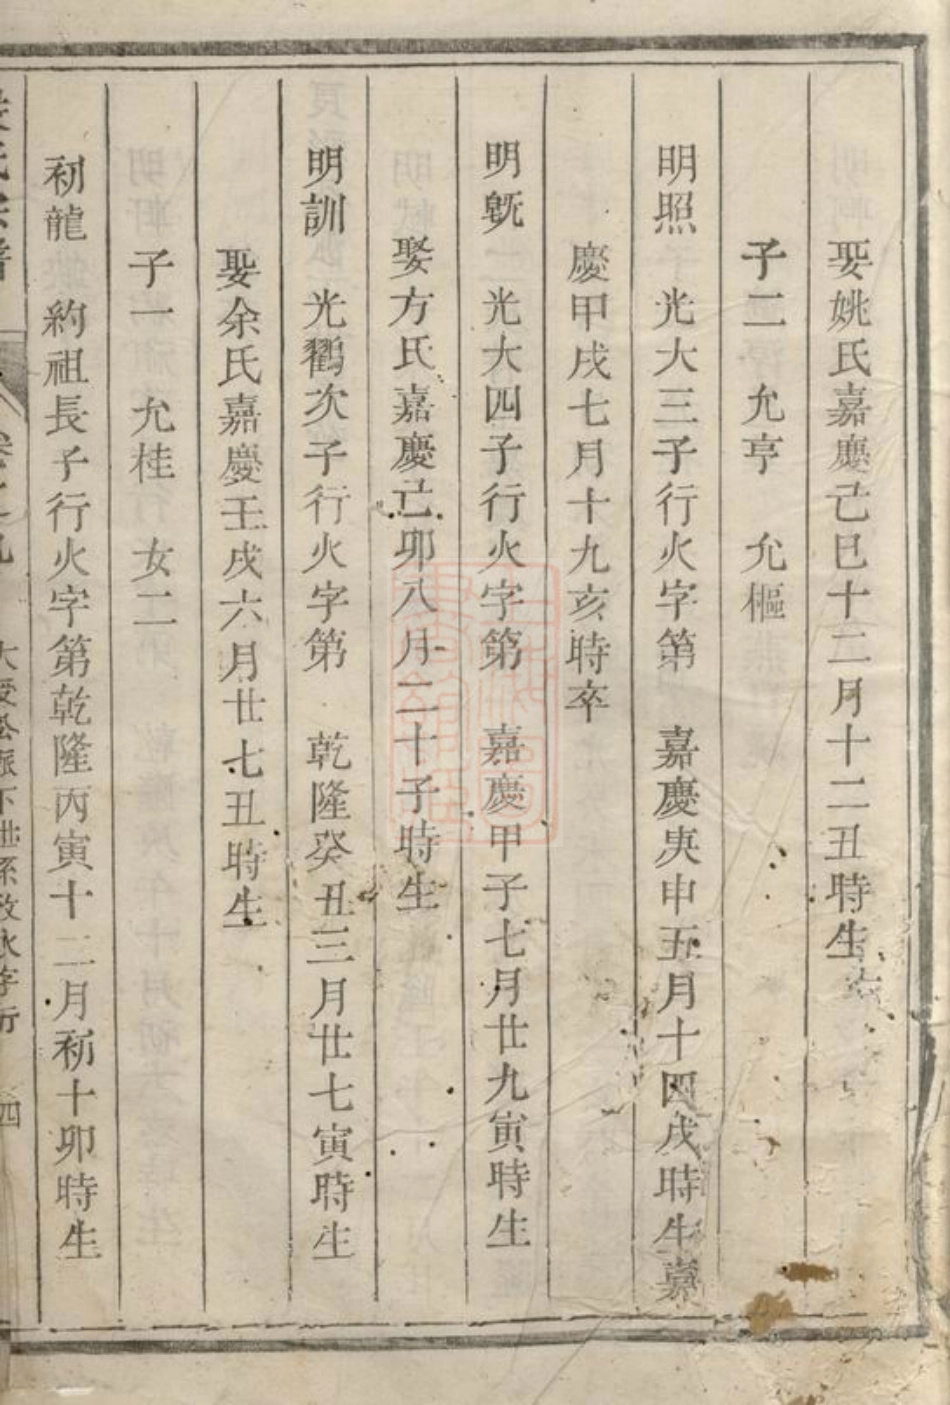 娶姚氏嘉慶己巳十二月十二丑時生
子二　允亨　允樞
明照　光大三子行火字第　嘉慶庚申五月十四戌時生嘉
慶甲戌七月十九亥時卒
明旣　光大四子行火字第　嘉慶甲子七月廿九寅時生
娶方氏嘉慶己卯八月二十子時生
明訓　光鸐次子行火字第　乾隆癸丑三月廿七寅時生
娶余氏嘉慶壬戌六月廿七丑時生
子一　允桂　女二
初龍　約祖長子行火字第乾隆丙寅十二月初十卯時生
氏宗譜　卷之九　大　公派下世系改水字行　四